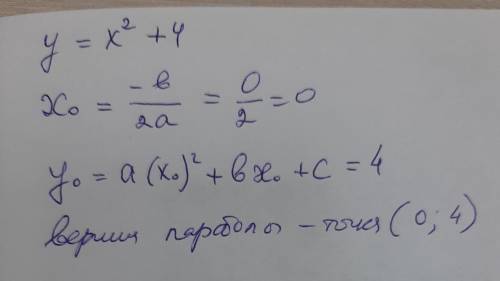 y = x² + 4
x₀ = -в/2a = 0/2 = 0
y₀ = a(x₀)² + вx₀ + c = 4
вершин параболы - точка (0; 4)